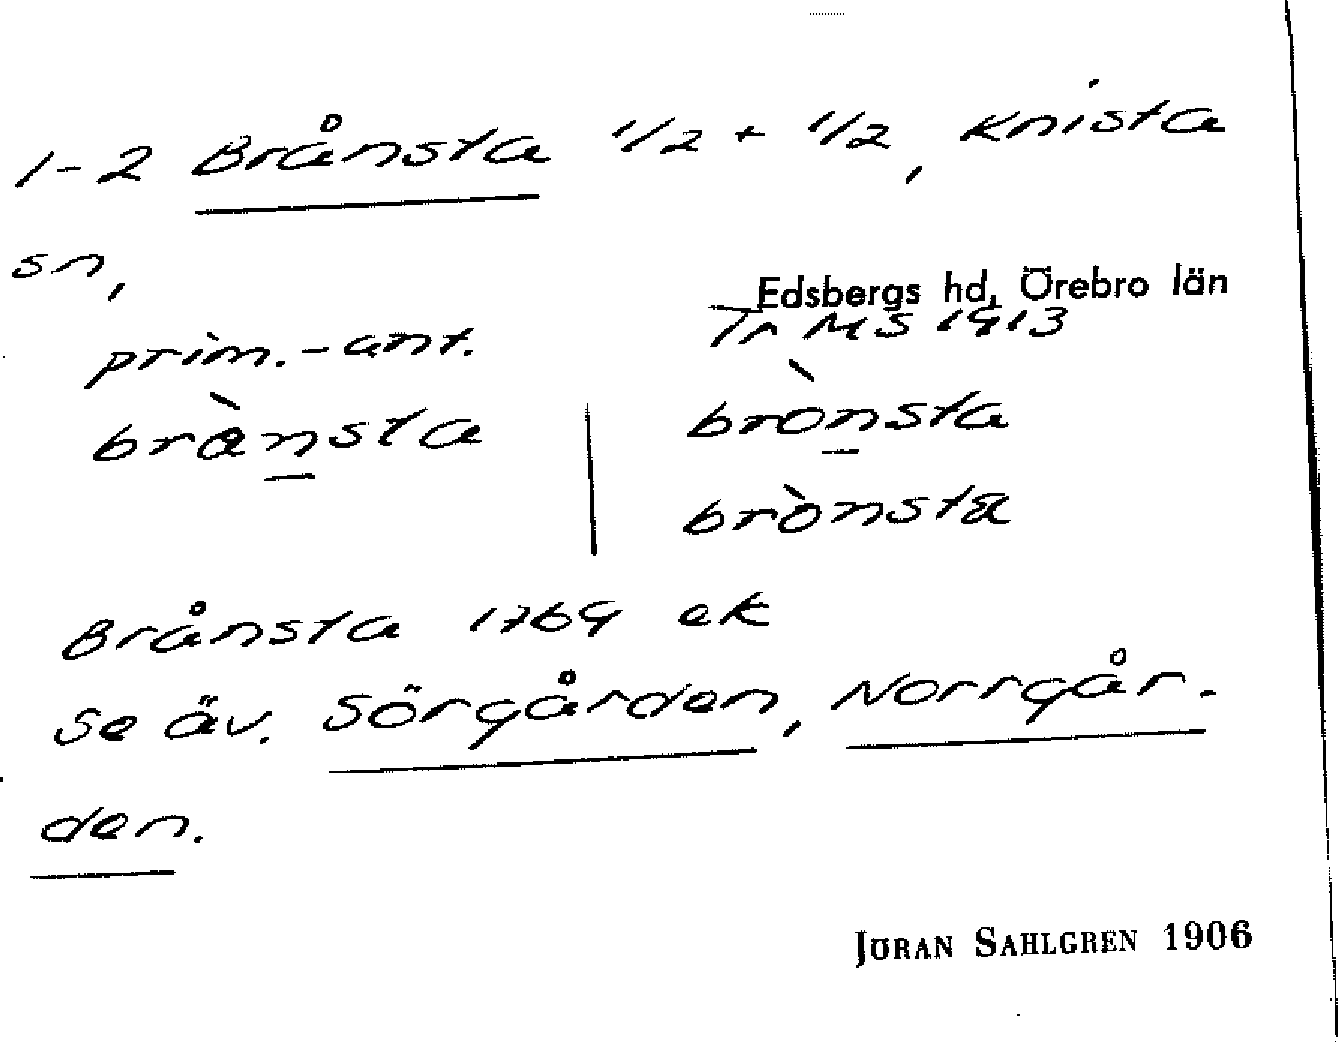 1-2 Brånsta 1/2 + 1/2, Knista
sn,
Edsbergs hd, Örebro län
prim.-ant.
Tr MS 1913
brànsta
brònsta
brònsta
Brånsta 1769 ek
Se äv. Sörgården, Norrgår-
den.
JÖRAN SAHLGREN 1906